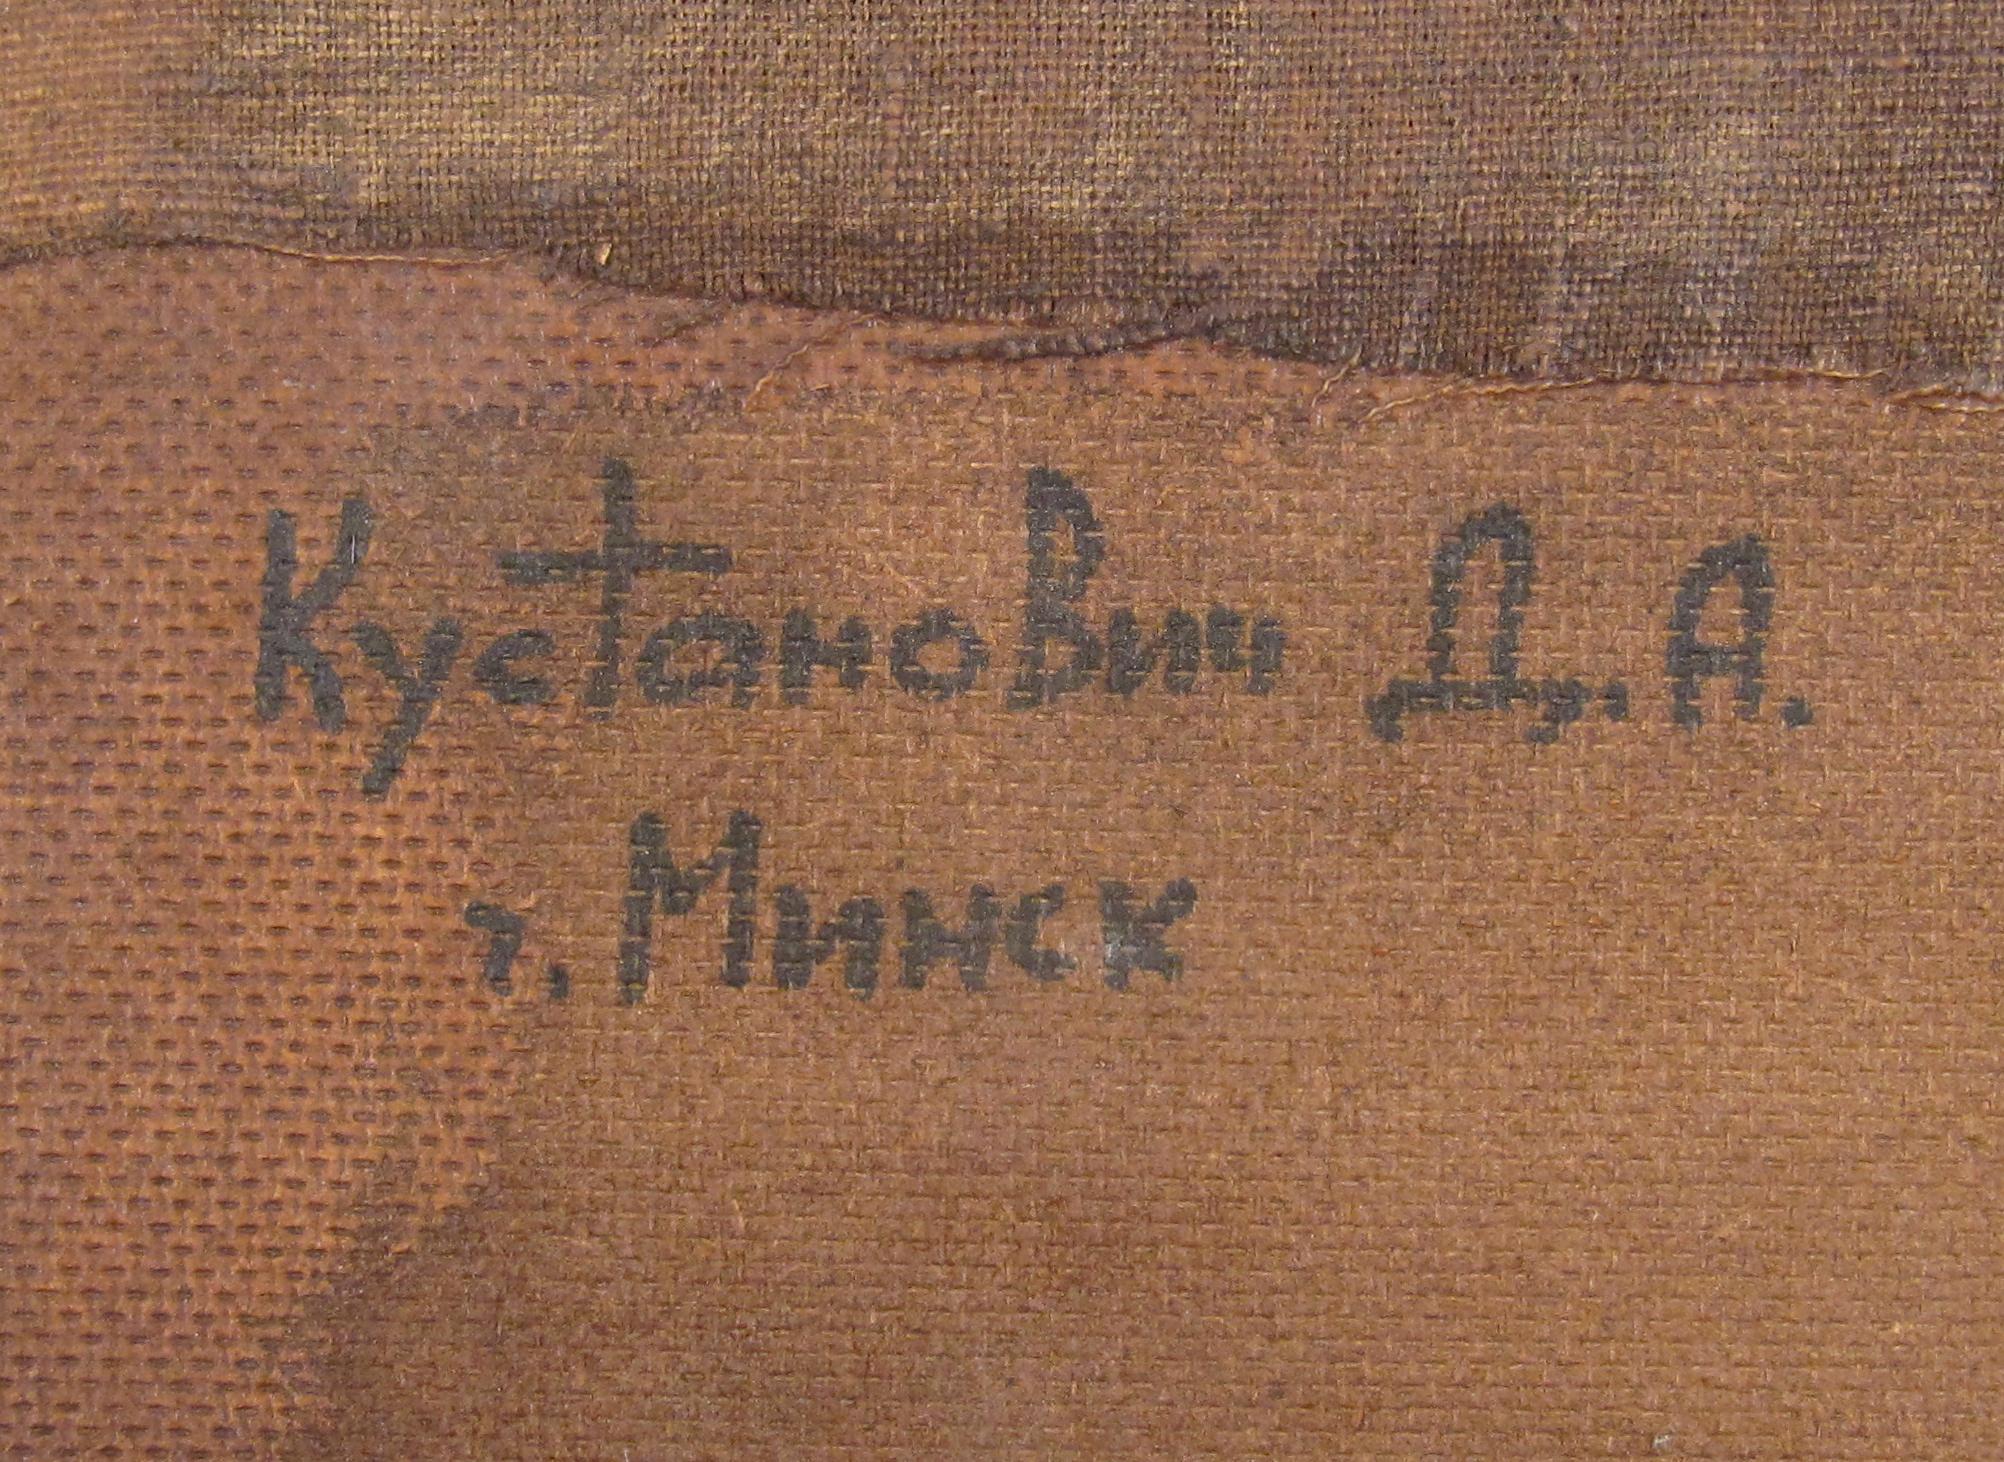 Кустанович Д. А.
г. Минск